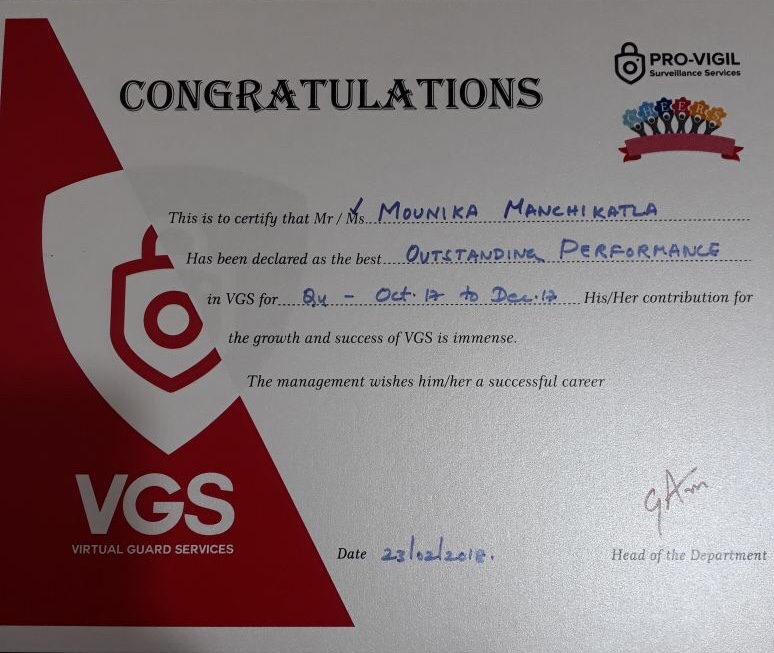 PRO-VIGIL
Surveillance Services
CONGRATULATIONS
CHEERS
This is to certify that Mr / Ms. MOUNIKA MANCHIKATLA
Has been declared as the best OUTSTANDING PERFORMANCE
in VGS for Q4 - Oct.17 to Dec.17 His/Her contribution for
the growth and success of VGS is immense.
The management wishes him/her a successful career
VGS
VIRTUAL GUARD SERVICES
Date 23/02/2018.
Head of the Department